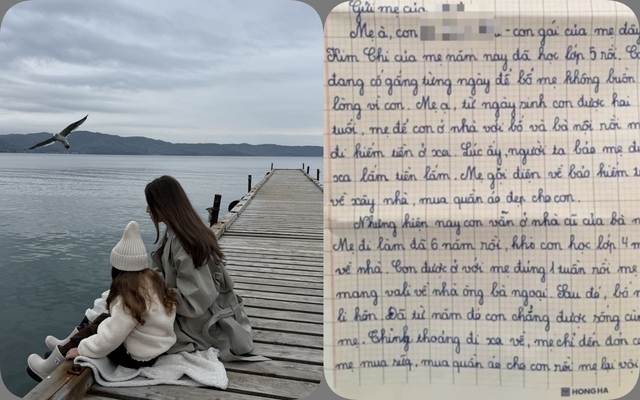 Gửi mẹ của
Mẹ à, con - con gái của mẹ đây
Kim Chi của mẹ năm nay đã học lớp 5 rồi. Co
đang cố gắng từng ngày để bố mẹ không buồn
lòng vì con. Mẹ ạ, từ ngày sinh con được hai
tuổi, mẹ để con ở nhà với bố và bà nội rồi m
đi kiếm tiền ở xa. Lúc ấy, người ta bảo mẹ đi
xa lắm tiền lắm. Mẹ gọi điện về bảo kiếm t
về xây nhà, mua quần áo đẹp cho con.
Nhưng hiện nay con vẫn ở nhà cũ của bà n
Mẹ đi làm đã 6 năm rồi, khi con học lớp 4 m
về nhà. Con được ở với mẹ đúng 1 tuần rồi mẹ
mang vali về nhà ông bà ngoại. Sau đó, bố m
li hôn. Đã từ năm đó con chẳng được sống cùn
mẹ. Thỉnh thoảng đi xa về, mẹ chỉ đến đón co
mẹ mua , mua quần áo cho con rồi mẹ lại với
HONG HA